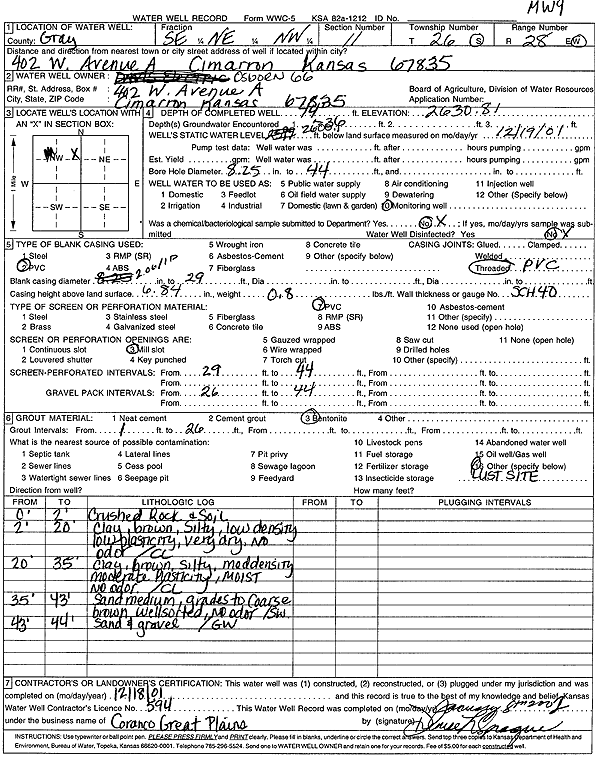 MW9
WATER WELL RECORD Form WWC-5 KSA 82a-1212 ID No.
1 LOCATION OF WATER WELL: Fraction Section Number Township Number Range Number
County: Gray SE ¼ NE ¼ NW ¼ 11 T 26 S R 28 E/W
Distance and direction from nearest town or city street address of well if located within city?
402 W. Avenue A Cimarron Kansas 67835
2 WATER WELL OWNER: OSDDEN 66
RR#, St. Address, Box # : 402 W. Avenue A Board of Agriculture, Division of Water Resources
City, State, ZIP Code : Cimarron Kansas 67835 Application Number:
3 LOCATE WELL'S LOCATION WITH AN "X" IN SECTION BOX:
N
NW X NE
W E
SW SE
S
1 Mile
4 DEPTH OF COMPLETED WELL ft. ELEVATION: 2630.81
Depth(s) Groundwater Encountered 1. ft. 2. ft. 3. ft.
WELL'S STATIC WATER LEVEL ft. below land surface measured on mo/day/yr 12/19/01
Pump test data: Well water was ft. after hours pumping gpm
Est. Yield gpm: Well water was ft. after hours pumping gpm
Bore Hole Diameter 8.25 in. to 44 ft., and in. to ft.
WELL WATER TO BE USED AS: 5 Public water supply 8 Air conditioning 11 Injection well
1 Domestic 3 Feedlot 6 Oil field water supply 9 Dewatering 12 Other (Specify below)
2 Irrigation 4 Industrial 7 Domestic (lawn & garden) 10 Monitoring well
Was a chemical/bacteriological sample submitted to Department? Yes No X ; If yes, mo/day/yrs sample was submitted Water Well Disinfected? Yes No X
5 TYPE OF BLANK CASING USED: 5 Wrought iron 8 Concrete tile CASING JOINTS: Glued Clamped
1 Steel 3 RMP (SR) 6 Asbestos-Cement 9 Other (specify below) Welded
2 PVC 4 ABS 7 Fiberglass Threaded PVC
Blank casing diameter in. to 29 ft., Dia in. to ft., Dia in. to ft.
Casing height above land surface 6.84 in., weight 0.8 lbs./ft. Wall thickness or gauge No. SCH40
TYPE OF SCREEN OR PERFORATION MATERIAL: 7 PVC 10 Asbestos-cement
1 Steel 3 Stainless steel 5 Fiberglass 8 RMP (SR) 11 Other (specify)
2 Brass 4 Galvanized steel 6 Concrete tile 9 ABS 12 None used (open hole)
SCREEN OR PERFORATION OPENINGS ARE: 5 Gauzed wrapped 8 Saw cut 11 None (open hole)
1 Continuous slot 3 Mill slot 6 Wire wrapped 9 Drilled holes
2 Louvered shutter 4 Key punched 7 Torch cut 10 Other (specify) ft.
SCREEN-PERFORATED INTERVALS: From 29 ft. to 44 ft., From ft. to ft.
From ft. to ft., From ft. to ft.
GRAVEL PACK INTERVALS: From 26 ft. to 44 ft., From ft. to ft.
From ft. to ft., From ft. to ft.
6 GROUT MATERIAL: 1 Neat cement 2 Cement grout 3 Bentonite 4 Other
Grout Intervals: From 1 ft. to 26 ft., From ft. to ft., From ft. to ft.
What is the nearest source of possible contamination: 10 Livestock pens 14 Abandoned water well
1 Septic tank 4 Lateral lines 7 Pit privy 11 Fuel storage 15 Oil well/Gas well
2 Sewer lines 5 Cess pool 8 Sewage lagoon 12 Fertilizer storage 16 Other (specify below)
3 Watertight sewer lines 6 Seepage pit 9 Feedyard 13 Insecticide storage LUST SITE
Direction from well? How many feet?
FROM TO LITHOLOGIC LOG FROM TO PLUGGING INTERVALS
0' 2' Crushed Rock & Soil
2' 20' Clay, brown, silty, low density
low plasticity, very dry, NO
odor /CL
20' 35' Clay, brown, silty, med density
moderate plasticity, MOIST
NO odor. /CL
35' 43' Sand medium, grades to coarse
brown well sorted, NO odor /SW
43' 44' Sand & gravel /GW
7 CONTRACTOR'S OR LANDOWNER'S CERTIFICATION: This water well was (1) constructed, (2) reconstructed, or (3) plugged under my jurisdiction and was
completed on (mo/day/year) 12/18/01 and this record is true to the best of my knowledge and belief. Kansas
Water Well Contractor's Licence No. 594 This Water Well Record was completed on (mo/day/yr)
under the business name of Coranco Great Plains by (signature)
INSTRUCTIONS: Use typewriter or ball point pen. PLEASE PRESS FIRMLY and PRINT clearly. Please fill in blanks, underline or circle the correct answers. Send top three copies to Kansas Department of Health and
Environment, Bureau of Water, Topeka, Kansas 66620-0001. Telephone 785-296-5524. Send one to WATER WELL OWNER and retain one for your records. Fee of $5.00 for each constructed well.